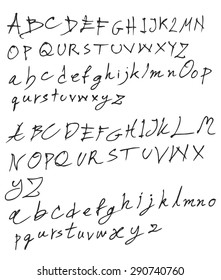 ABCDEFGHIJKLMN
OPQURSTUVWXYZ
abcdefghijklmnOop
qurstuvwxyz
ABCDEFGHIJKLM
NOPQURSTUVWX
YZ
abcdefghijklmno
pqurstuvwxyz
shutterstock.com · 290740760